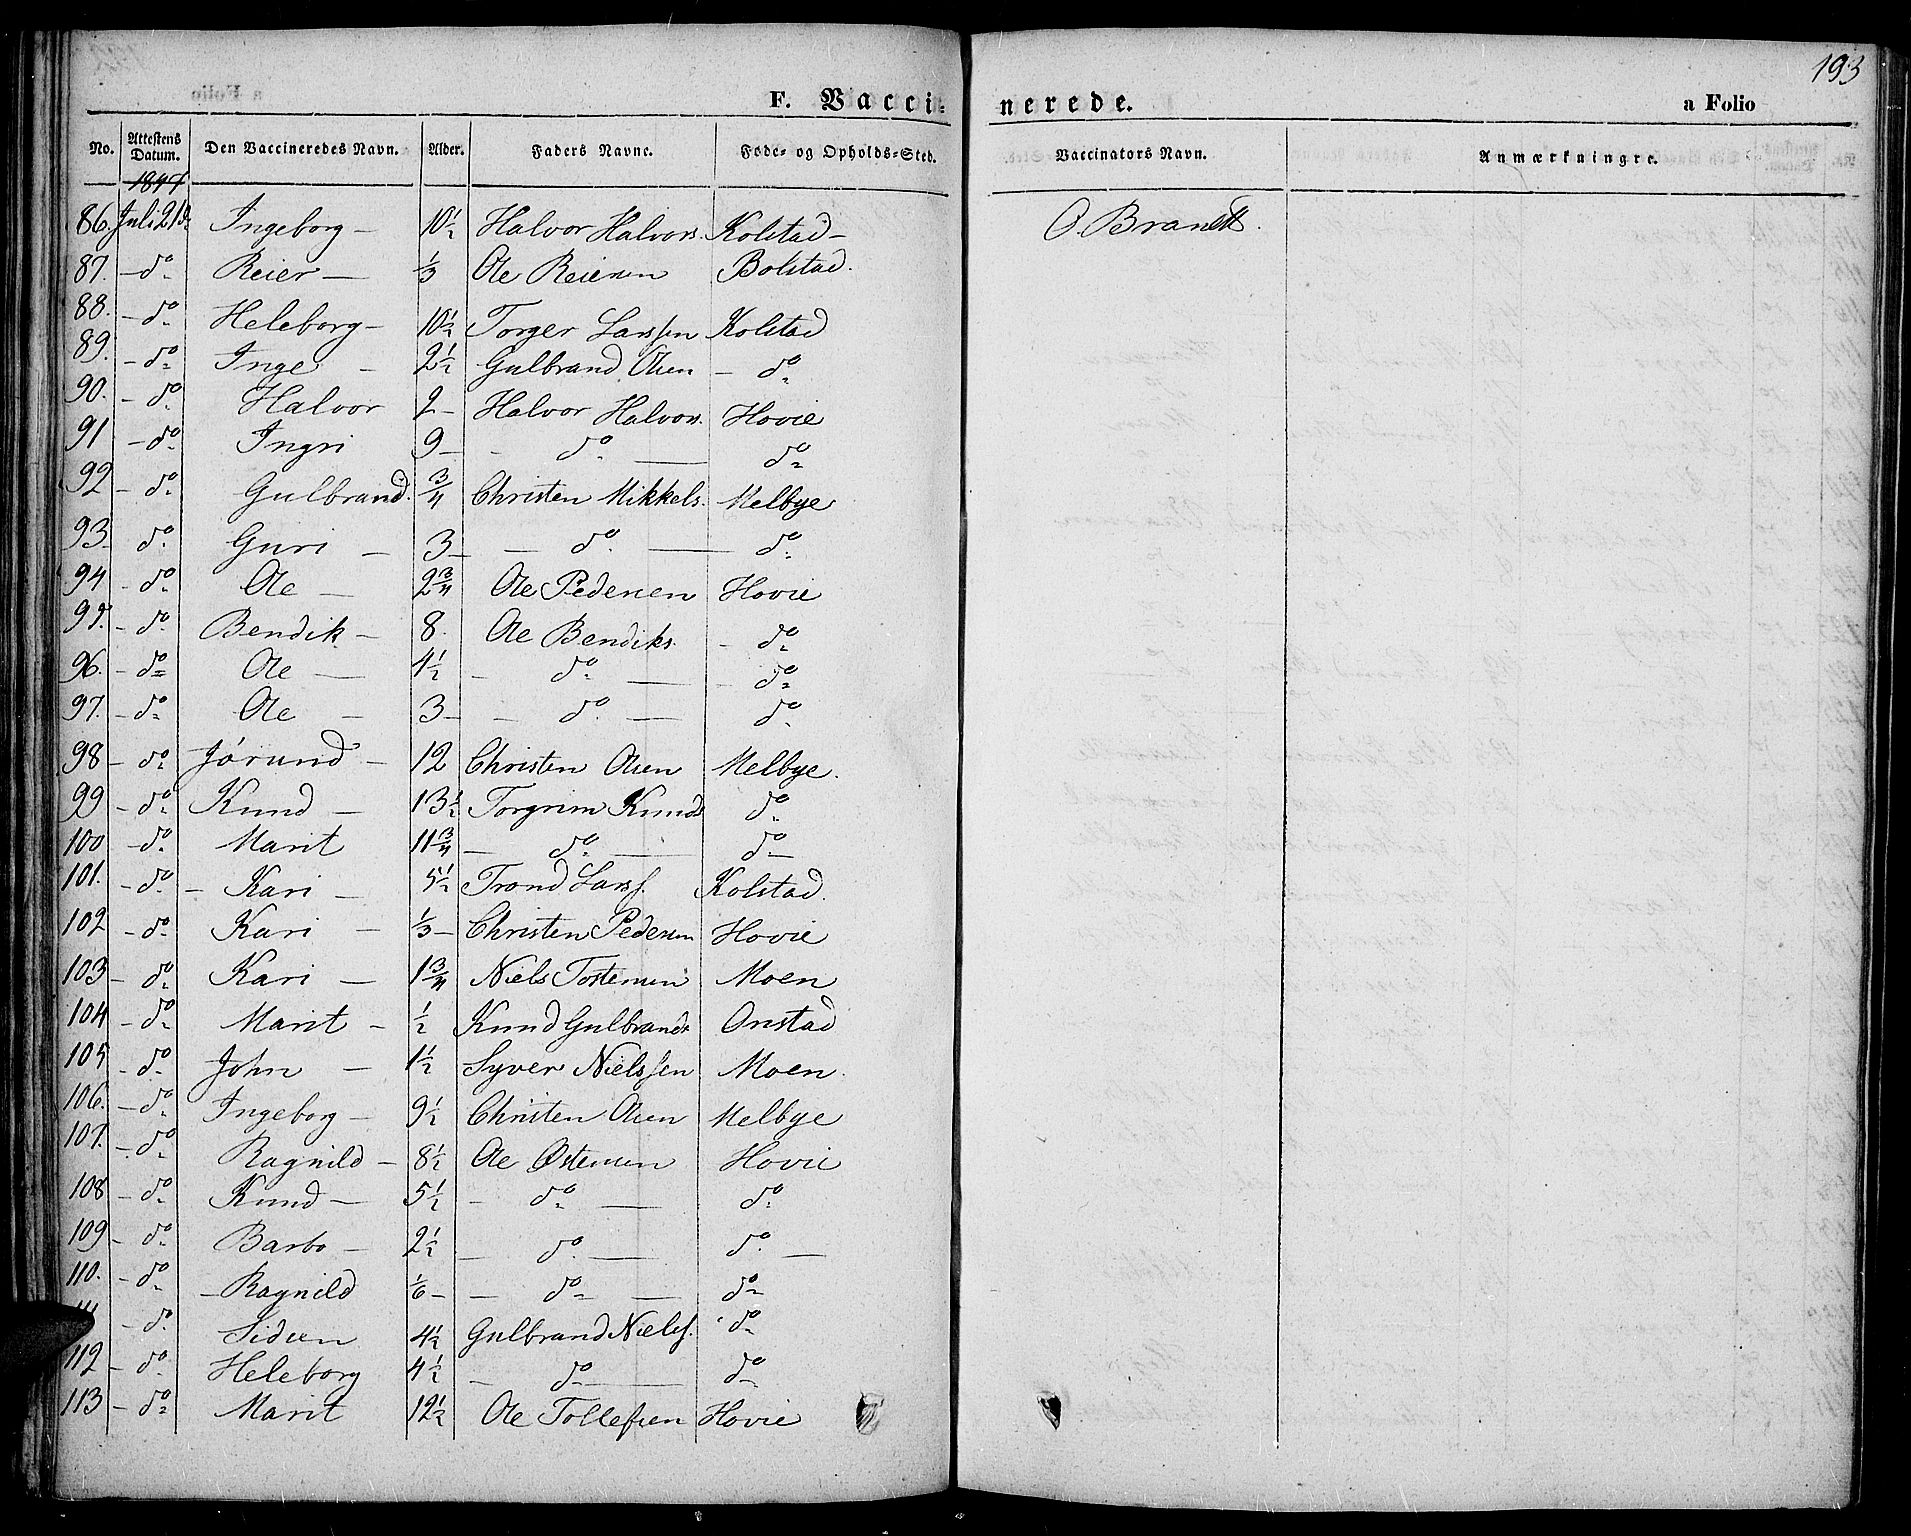 193
F. Vacci-nerede. a Folio
No. Attestens Datum. Den Vaccineredes Navn. Alder. Faders Navne. Føde- og Opholds-Sted. Vaccinators Navn. Anmærkningre.
1847
86. Juli 21de Ingeborg - 10½ Halvor Halvors. Kolstad - O. Brandt.
87. - do Reier - ⅓ Ole Reiersen Bolstad.
88. - do Heleborg - 10½ Torger Larssen Kolstad
89. - do Inge - 2½ Gulbrand Olsen - do
90. - do Halvor 2 - Halvor Halvors. Hovie
91 - do Ingri 9 - - do - do
92 - do Gulbrand. ¾ Christen Mikkels. Melbye
93. do Guri - 3 - - do - do
94 - do Ole - 2¾ Ole Pedersen Hovie
95. - do Bendik - 8. Ole Bendiks. - do
96. - do Ole - 4½ - do - - do
97. - do Ole - 3 - - do - do
98 - do Jørund - 12 Christen Olsen Melbye.
99 - do Knud - 13½ Torgrim Knuds do
100 do Marit 11¾ - do - do -
101. - do - Kari - 5½ Trond Larss. Kolstad.
102 - do Kari - ⅓ - Christen Pedersen Hovie
103 - do Kari - 1¾ Niels Tostensen Moen
104 - do Marit - ½ Knud Gulbrands Onstad
105 - do John - 1½ Syver Nielssen Moen.
106. - do Ingeborg - 9½ Christen Olsen Melbye
107. - do Ragnild - 8½ Ole Østensen Hovie
108 - do Knud - 5½ - do - do
109 - do Barbo - 2½ - do - do -
110. - do - Ragnild ⅙ - - do - do
- do 4½ Gulbrand Niels. do
112 - do Heleborg 4½ - do - do
113 - do Marit 12½ Ole Tollefsen Hovie